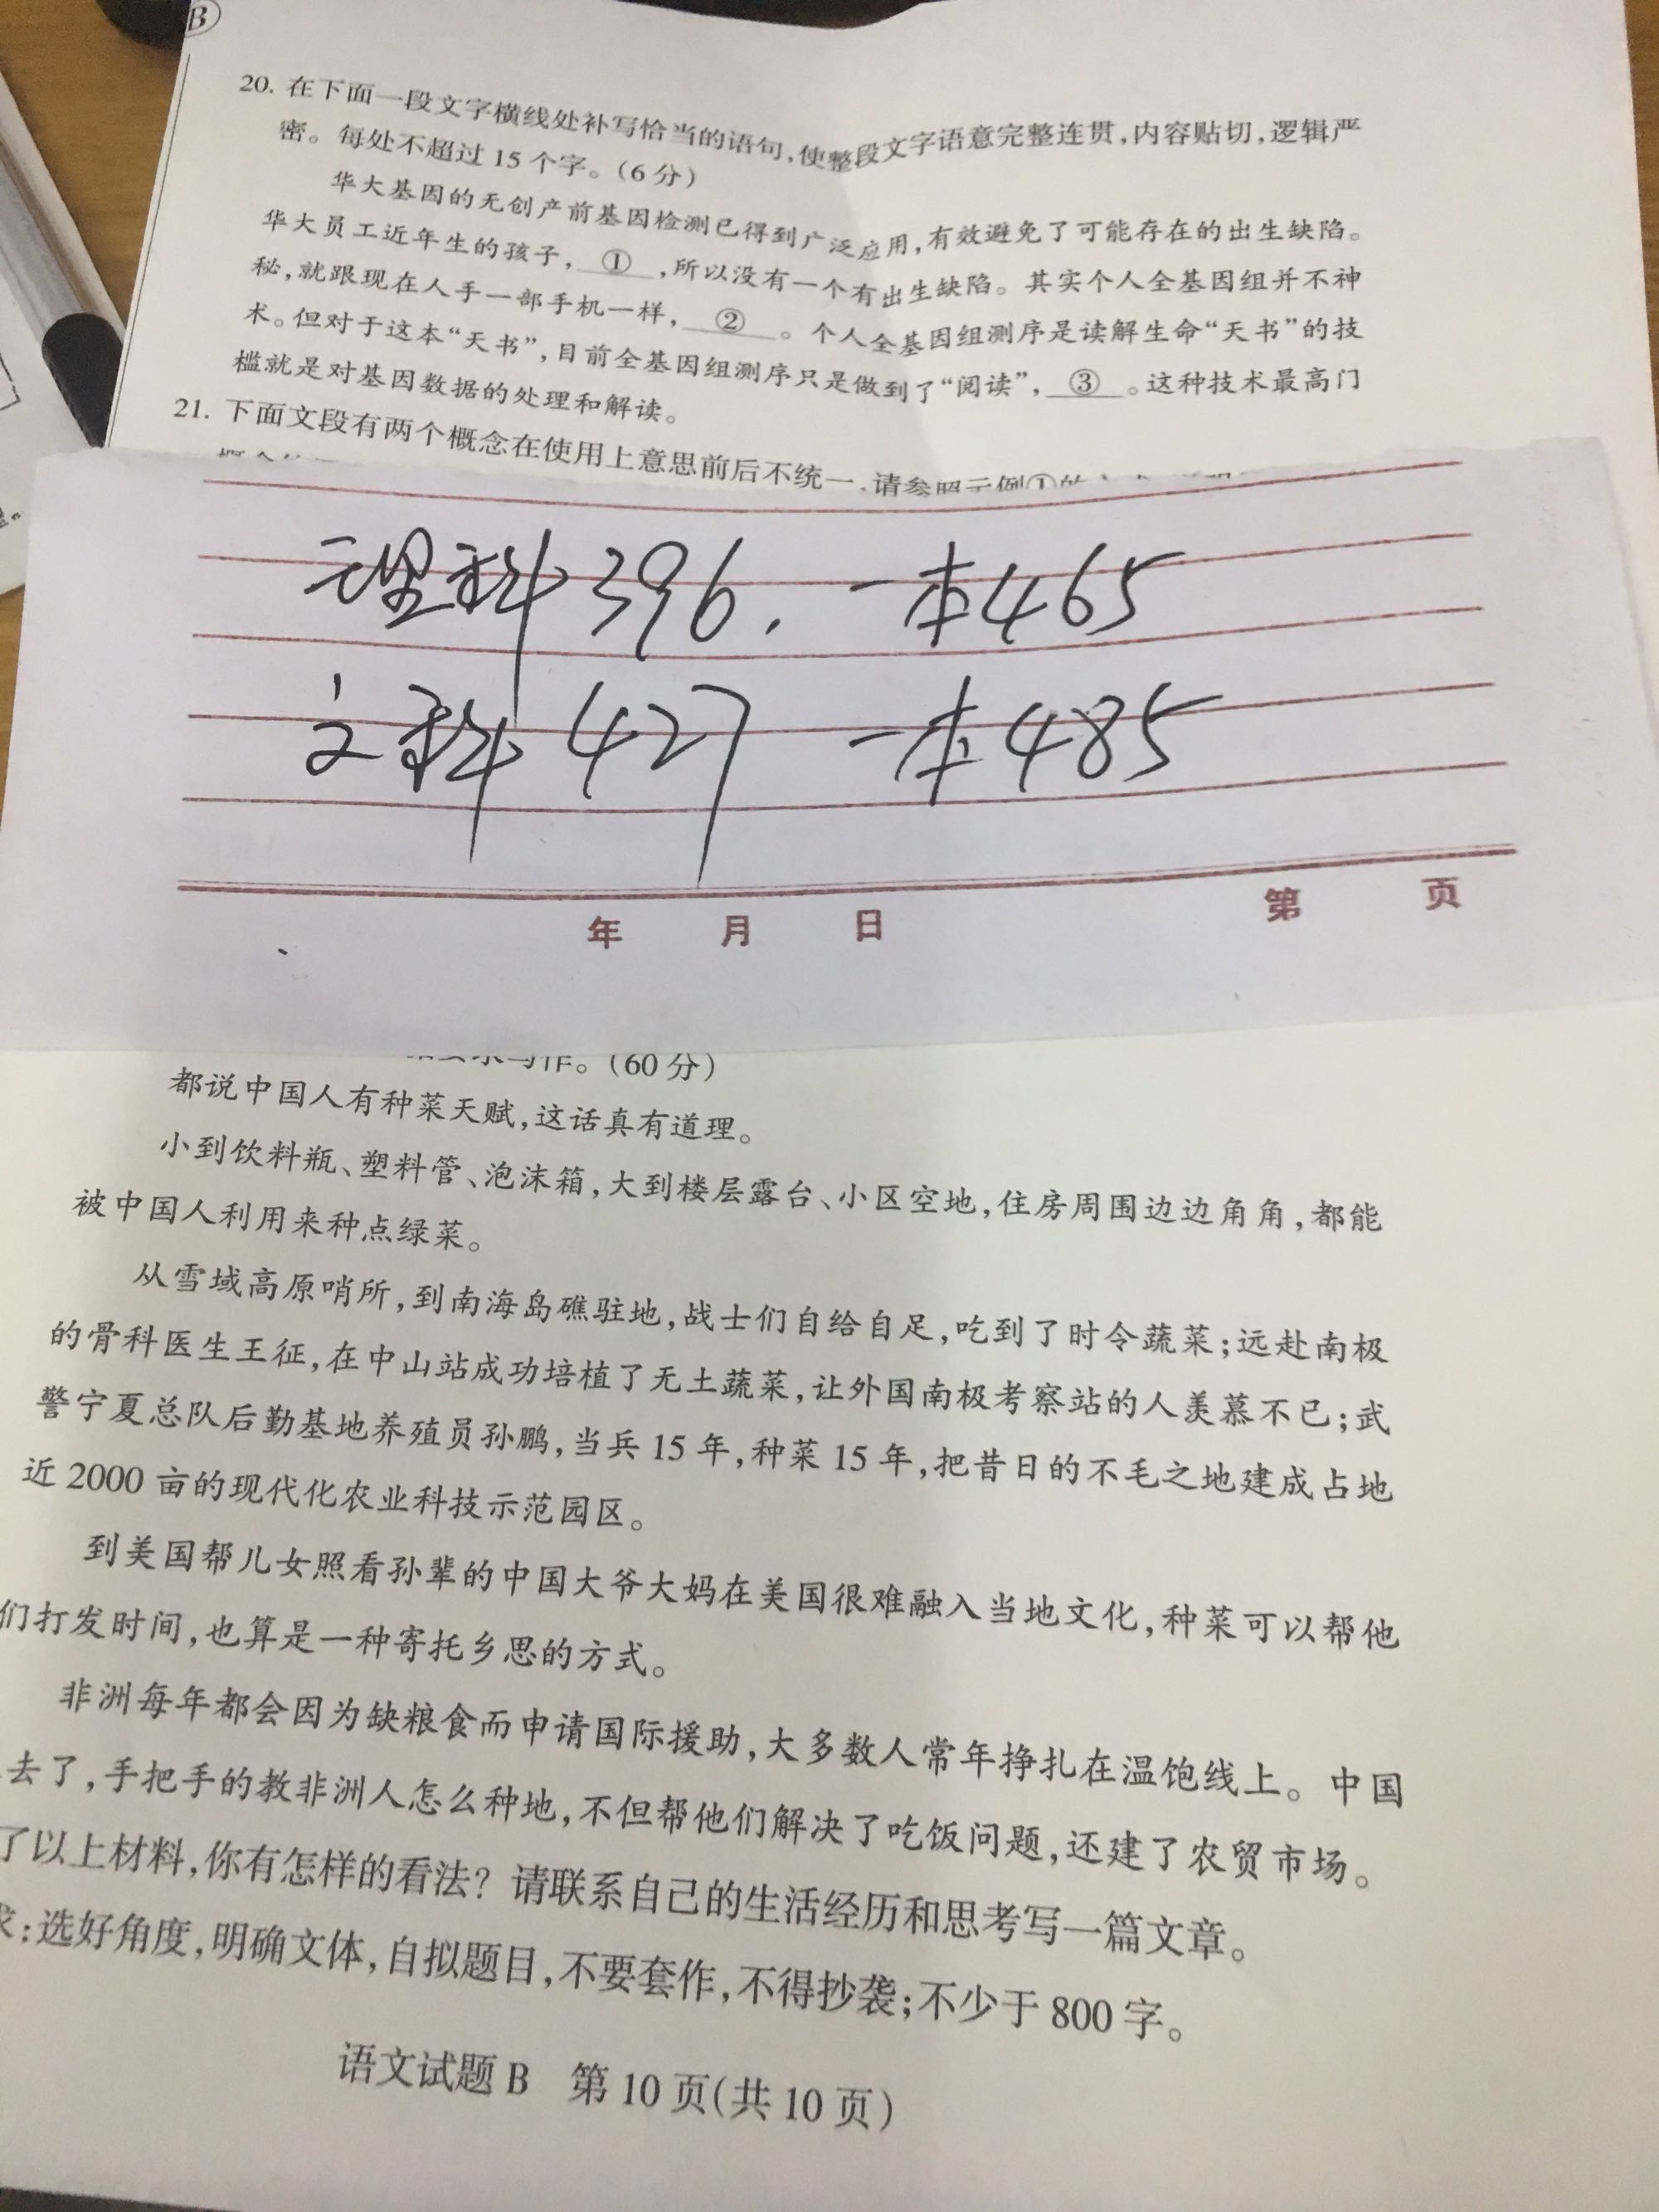 B
20. 在下面一段文字横线处补写恰当的语句,使整段文字语意完整连贯,内容贴切,逻辑严
密。每处不超过15个字。(6分)
华大基因的无创产前基因检测已得到广泛应用,有效避免了可能存在的出生缺陷。
华大员工近年生的孩子,①,所以没有一个有出生缺陷。其实个人全基因组并不神
秘,就跟现在人手一部手机一样,②。个人全基因组测序是读解生命“天书”的技
术。但对于这本“天书”,目前全基因组测序只是做到了“阅读”,③。这种技术最高门
槛就是对基因数据的处理和解读。
21. 下面文段有两个概念在使用上意思前后不统一,请参照示例①的
理科396. 一本465
文科427 一本485
年 月 日 第 页
写作。(60分)
都说中国人有种菜天赋,这话真有道理。
小到饮料瓶、塑料管、泡沫箱,大到楼层露台、小区空地,住房周围边边角角,都能
被中国人利用来种点绿菜。
从雪域高原哨所,到南海岛礁驻地,战士们自给自足,吃到了时令蔬菜;远赴南极
的骨科医生王征,在中山站成功培植了无土蔬菜,让外国南极考察站的人羡慕不已;武
警宁夏总队后勤基地养殖员孙鹏,当兵15年,种菜15年,把昔日的不毛之地建成占地
近2000亩的现代化农业科技示范园区。
到美国帮儿女照看孙辈的中国大爷大妈在美国很难融入当地文化,种菜可以帮他
们打发时间,也算是一种寄托乡思的方式。
非洲每年都会因为缺粮食而申请国际援助,大多数人常年挣扎在温饱线上。中国
去了,手把手的教非洲人怎么种地,不但帮他们解决了吃饭问题,还建了农贸市场。
了以上材料,你有怎样的看法?请联系自己的生活经历和思考写一篇文章。
求:选好角度,明确文体,自拟题目,不要套作,不得抄袭;不少于800字。
语文试题B 第10页(共10页)